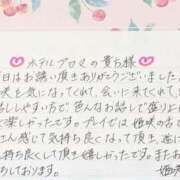 ホテルプロマの貴方様
日はお誘い頂きありがとうございました
咲を気になってくれて、会いに来てくれて
話しやすい方で色んなお話しで盛り上が
て楽しかったです。プレイでは姫咲のこと
さん感じて気持ち良くなって頂き、逆に
持ち良くして頂き嬉しかったです。またお
めしております。 姫咲